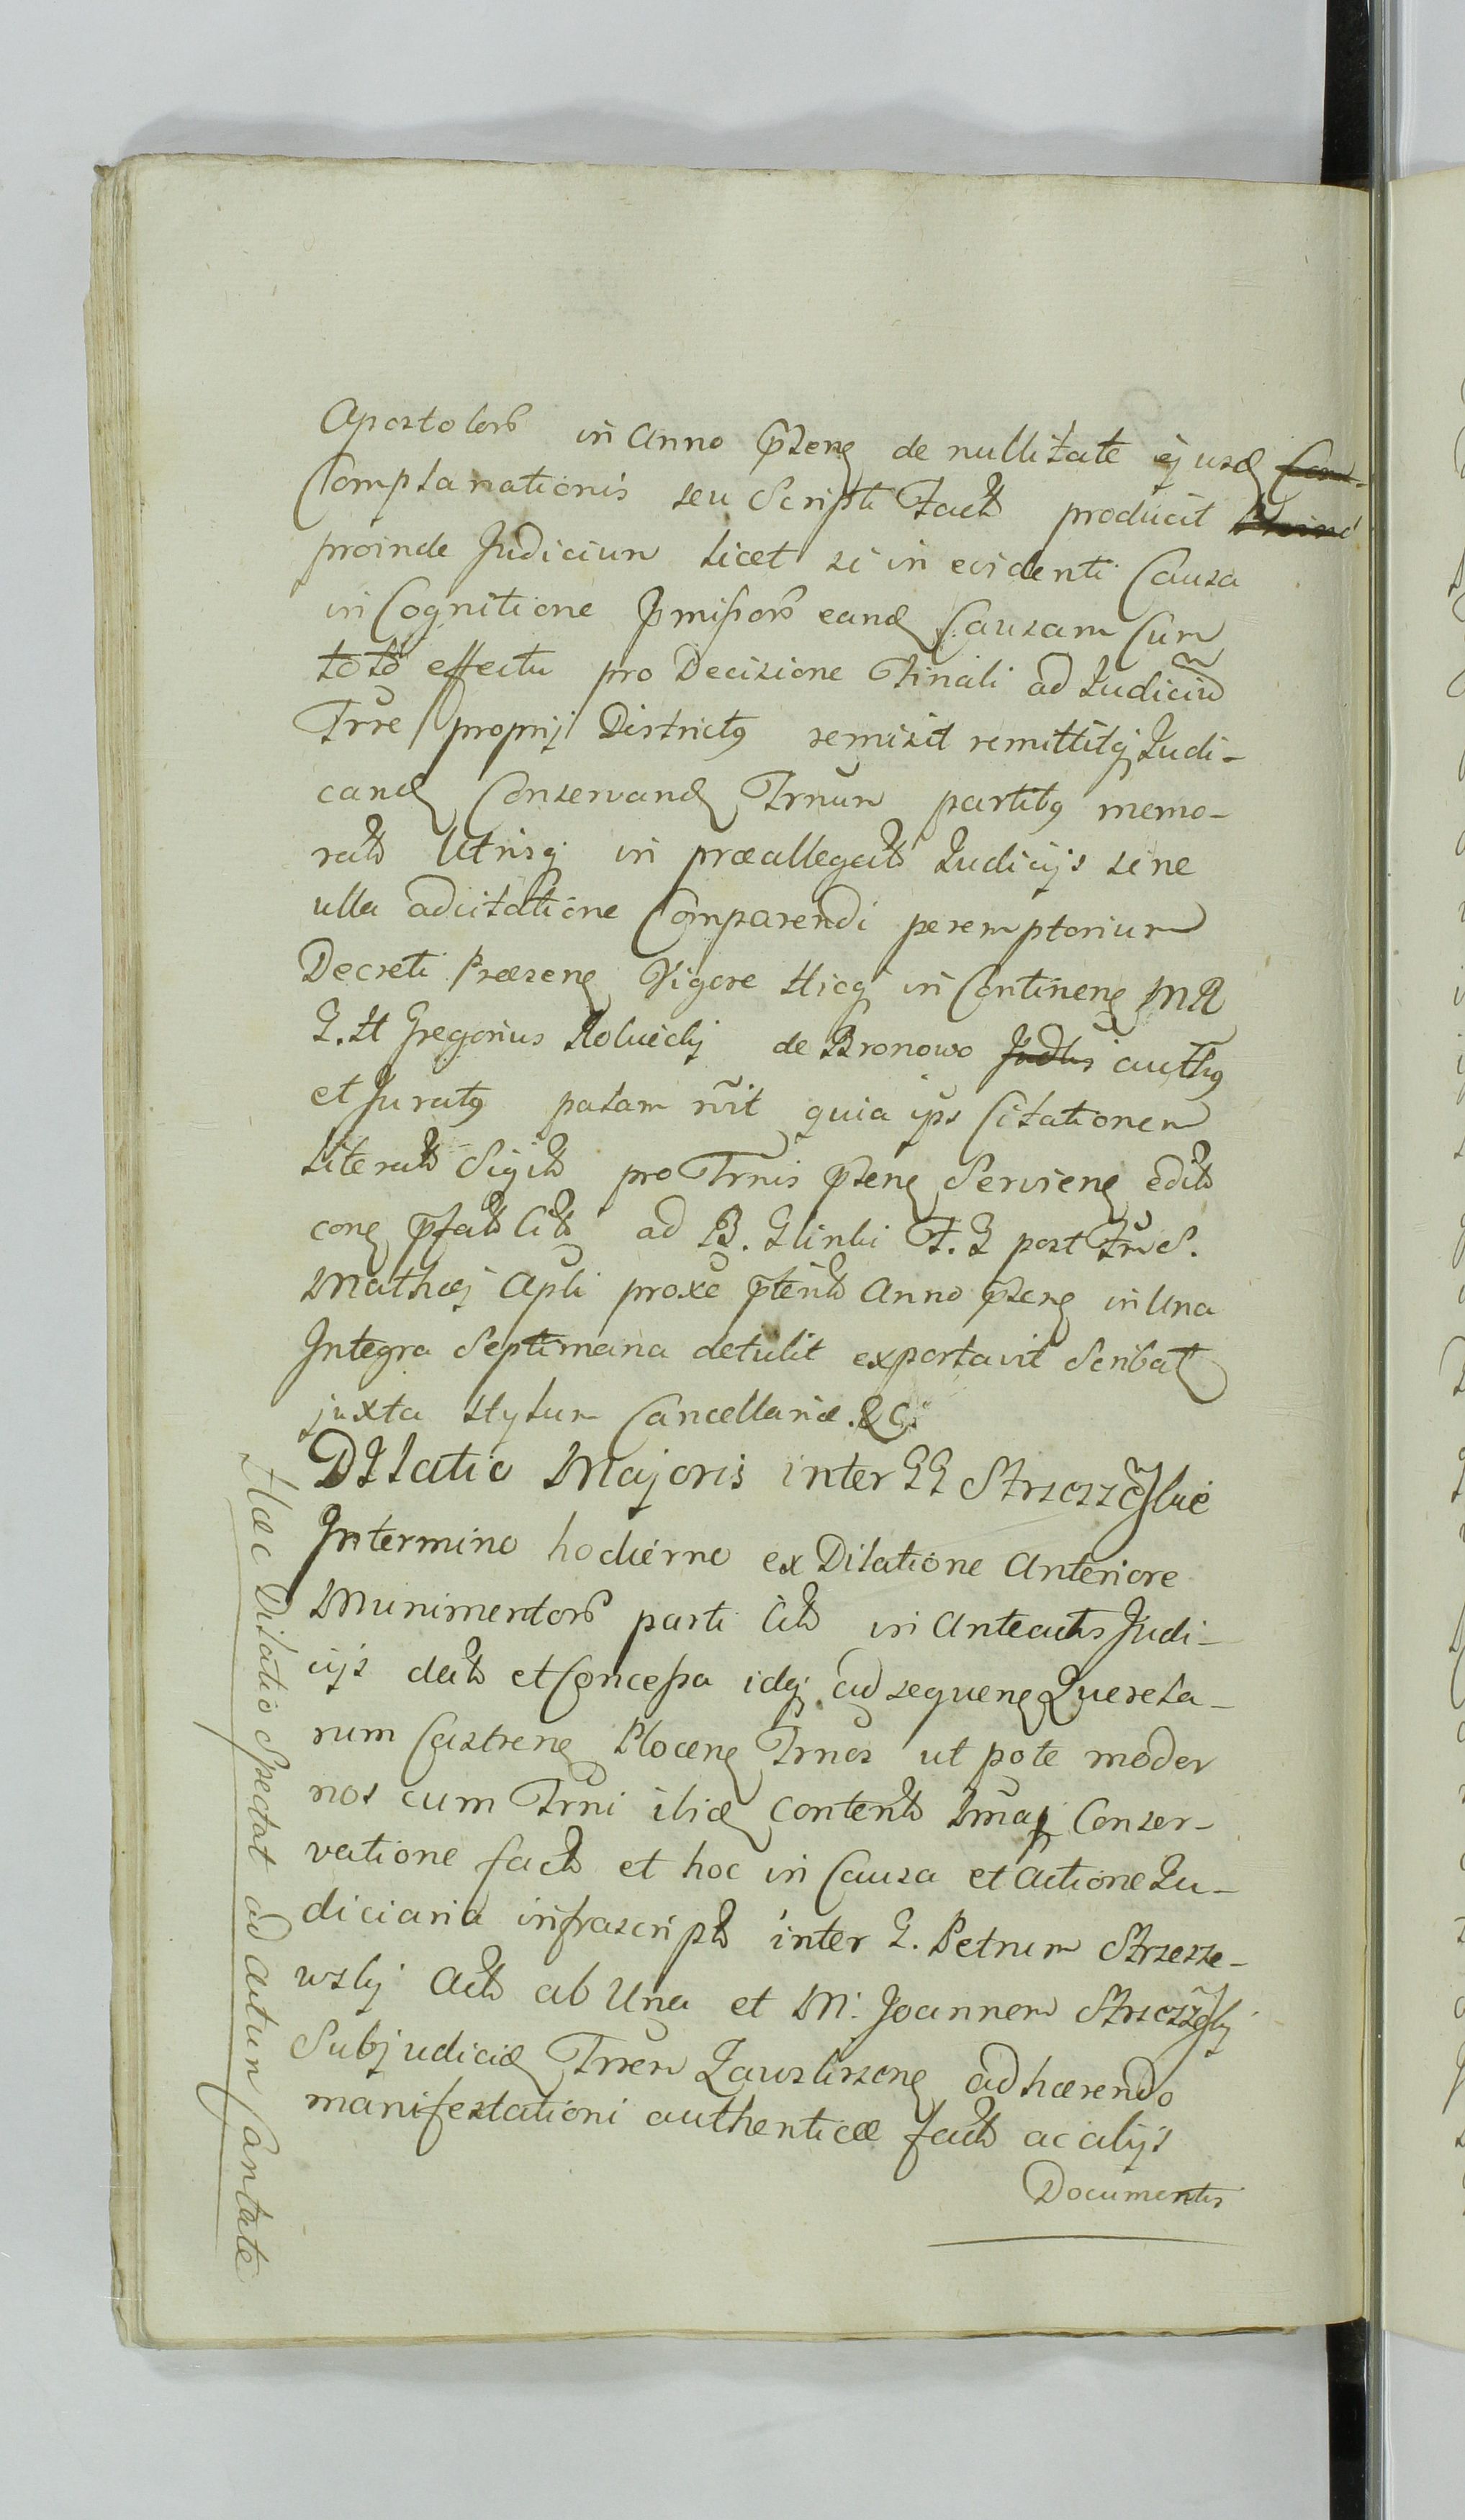 Apostolor in Anno pseng de nullitate ejusd Com-
Complanationis seu Scripti Fact producit
proinde Judicium licet si in evidenti Causa
in Cognitione pmissor eand Causam Cum
toto effectu pro Decisione Finali ad Judiciu
Trre proprij Districtg remisit remittitq Judi-
cand Conservand Trnum partibg memo-
rat Utrisq in præallegat Judicijs sine
ulla adcitatione Comparendi peremptorium
Decreti Præseng Vigore Hicq in Contineng MR
G. H Gregorius de Bronowo Judlis authg
et Juratg palam rvit quia ips Citationem
literat Sigit pro Trnis pseng Servieng edit
cong pfat Cit ad B. Glinki F. 2 post Fu S.
Mathæj Apli proxe ptent Anno pseng in Una
Integra Septimana detulit exportavit Scribat
juxta stylum Cancellariæ. &c.
Dilatio Majoris inter GG Strzeszeskie
In termino hodierno ex Dilatione Anteriore
Munimentor parti Cit in Anteactis Judi-
cijs dat et Concessa idq ad sequeng Querela-
rum Castreng Ploceng Trnos ut pote moder
nos cum Trni ibid content Conser-
vatione fact et hoc in Causa et Actione Ju-
diciaria infrascript inter G. Petrum Strzesze-
wskj Act ab Una et M. Joannem Strzeszeskj
Subjudicid Trrem Zawskrzeng adhærendo
manifestationi authenticæ fact ac alijs
Documentis
Hæc Dilatio Spectat ad Actum Cantate